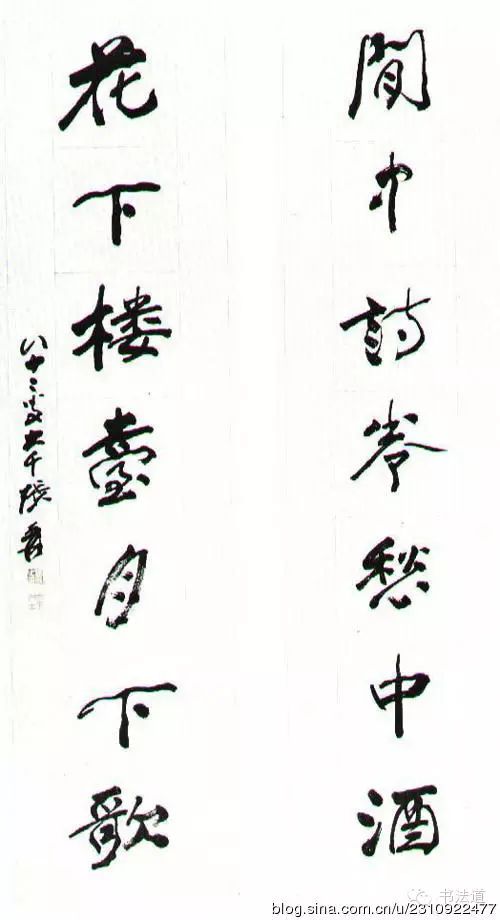 閒中詩卷愁中酒
花下楼臺月下歌
八十三叟大千張爰
书法道
blog.sina.com.cn/u/2310922477